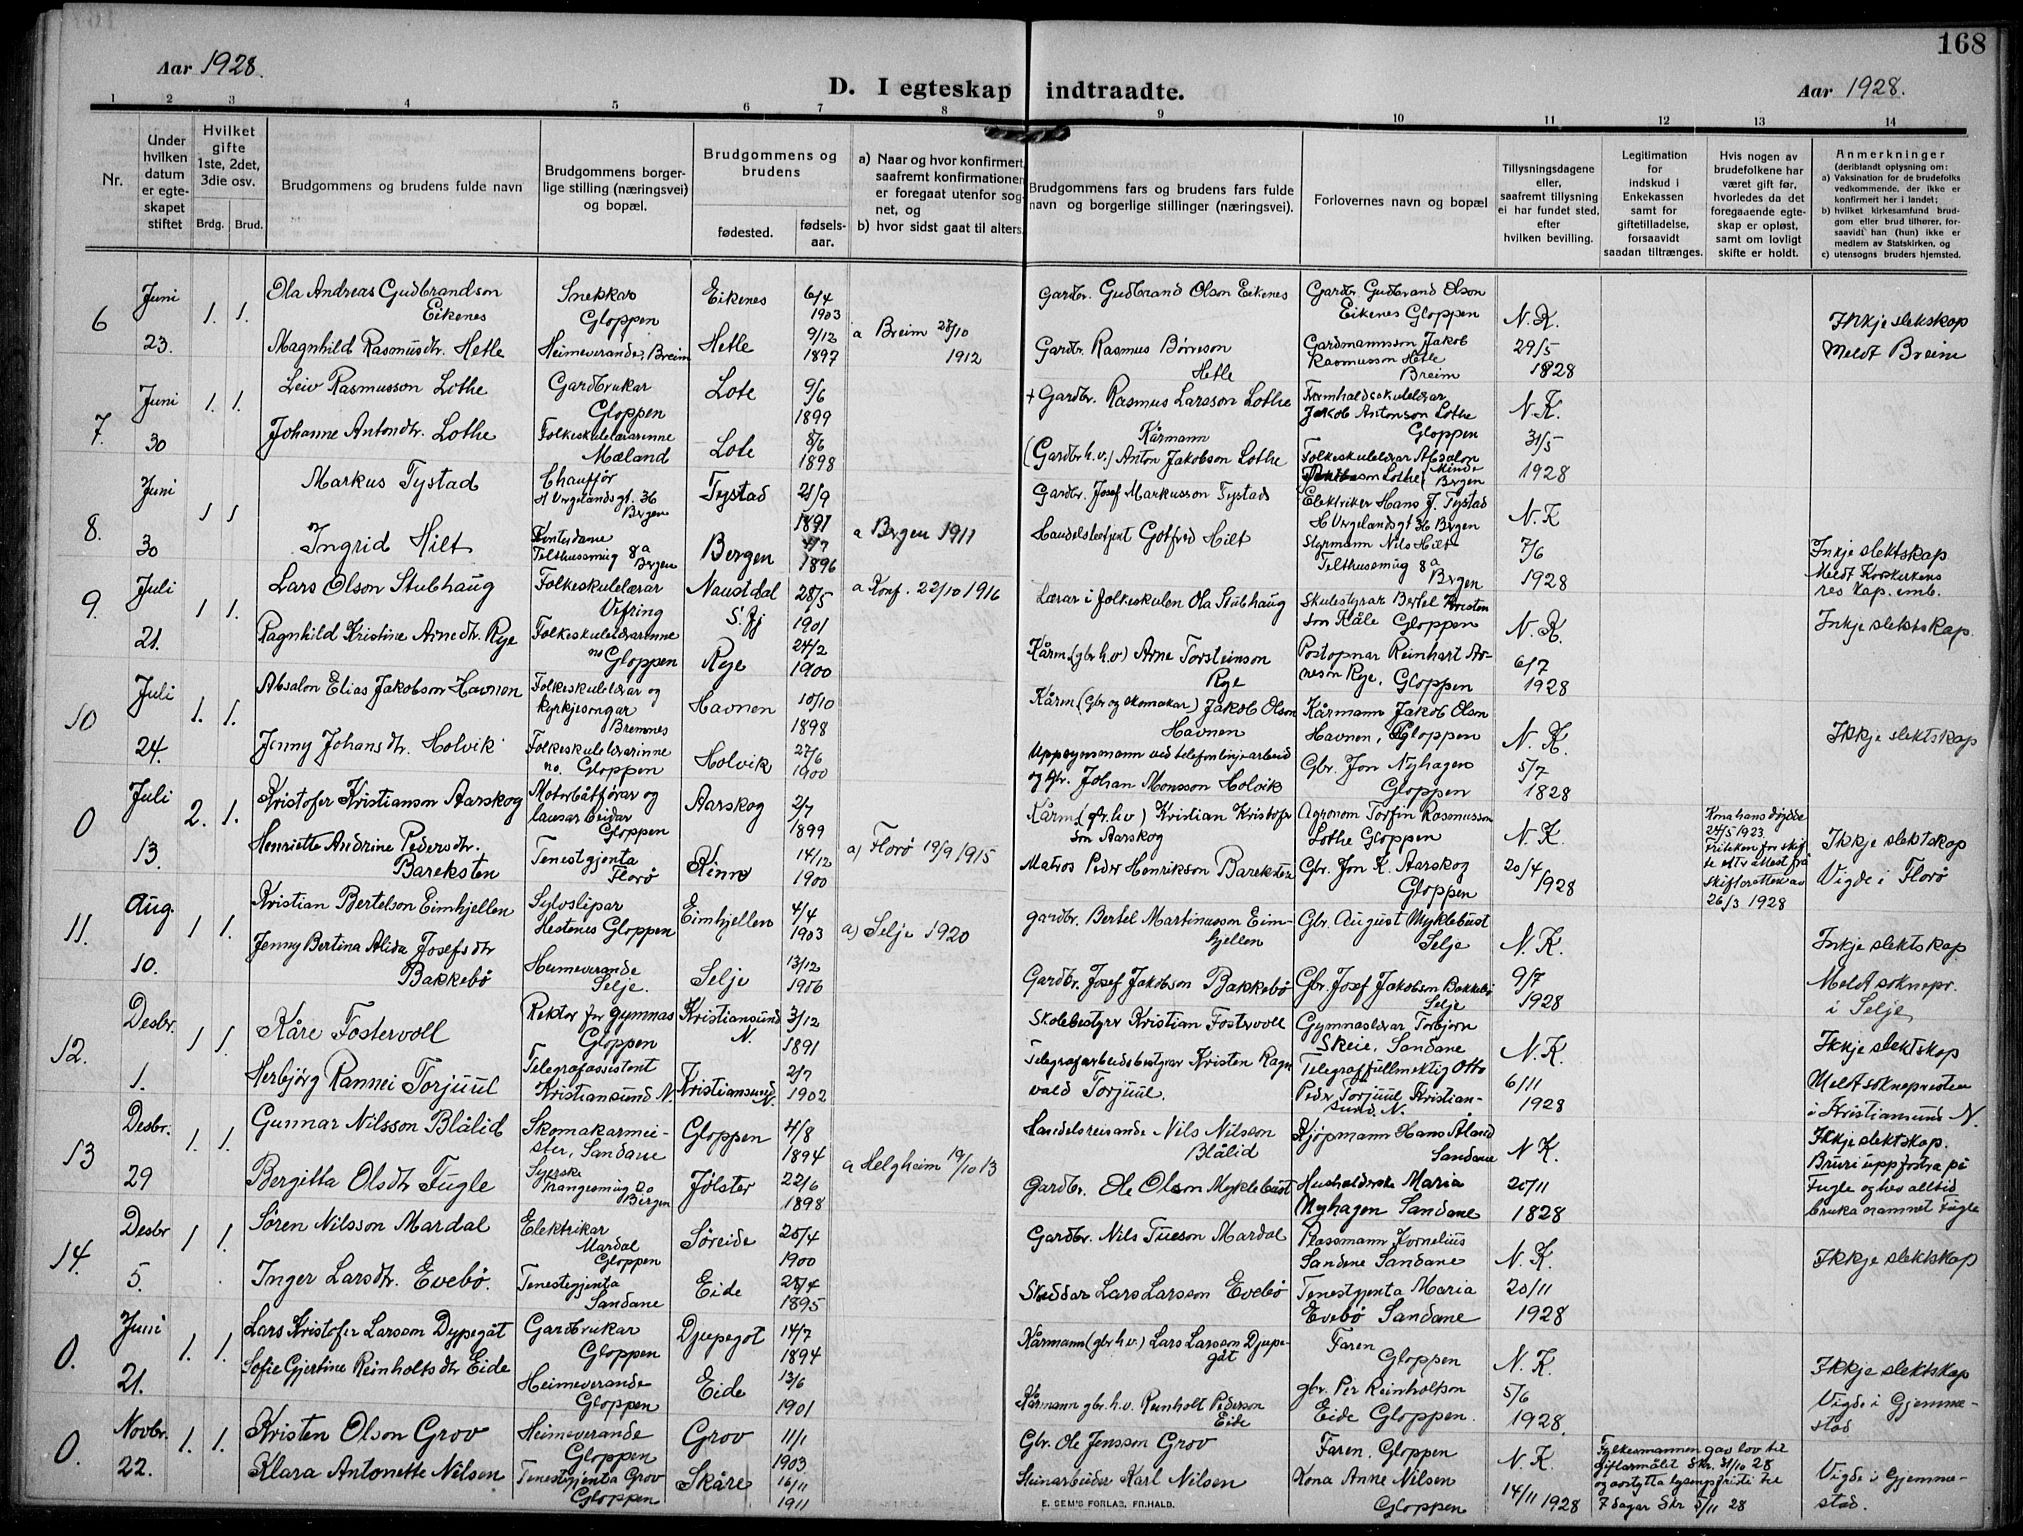 168
Aar 1928.
D. I egteskap indtraadte.
Aar 1928.
1 2 3 4 5 6 7 8 9 10 11 12 13 14
Nr.
Under hvilken datum er egteskapet stiftet
Hvilket gifte 1ste, 2det, 3die osv.
Brdg. Brud.
Brudgommens og brudens fulde navn
Brudgommens borgerlige stilling (næringsvei) og bopæl.
Brudgommens og brudens
fødested.
fødselsaar.
a) Naar og hvor konfirmert, saafremt konfirmationen er foregaat utenfor sognet, og
b) hvor sidst gaat til alters.
Brudgommens fars og brudens fars fulde navn og borgerlige stillinger (næringsvei).
Forlovernes navn og bopæl
Tillysningsdagene eller, saafremt tillysning ei har fundet sted, efter hvilken bevilling.
Legitimation for indskud i Enkekassen samt for giftetilladelse, forsaavidt saadan tiltrænges.
Hvis nogen av brudefolkene har været gift før, hvorledes da det foregaaende egteskap er opløst, samt om lovligt skifte er holdt.
Anmerkninger
(deriblandt oplysning om:
a) Vaksination for de brudefolks vedkommende, der ikke er konfirmert her i landet;
b) hvilket kirkesamfund brudgom eller brud tilhører, forsaavidt han (hun) ikke er medlem av Statskirken, og
c) utensogns bruders hjemsted.
6 Juni 23. 1. 1.
Ola Andreas Gudbrandson Eikenes
Snekkar Gloppen
Eikenes 6/4 1903
Gardbr. Gudbrand Olson Eikenes
Gardbr. Gudbrand Olson Eikenes Gloppen
Magnhild Rasmusdtr. Hetle
Heimeverande, Breim
Hetle 9/12 1897
a Breim 27/10 1912
Gardbr. Rasmus Børreson Hetle
Gardmannsson Jakob Rasmusson Hetle Breim
N. K. 29/5 1828
Ikkje slektskap Meldt Breim
7. Juni 30 1. 1.
Leiv Rasmusson Lothe
Gardbrukar Gloppen
Lote 9/6 1899
+ Gardbr. Rasmus Larsson Lothe
Framhaldsskulelærar Jakob Antonson Lothe Gloppen
Johanne Antondtr. Lothe
Folkeskulelærarinne Mæland
Lote 8/6 1898
Kårmann (Gardbr h.v.) Anton Jakobson Lothe
Folkeskulelærar Absalon Lothe, Minde Bergen
N. K. 31/5 1928
8. Juni 30 1 1
Markus Tystad
Chauffør H Vergelandsgt. 36 Bergen
Tystad 21/9 1891
Gardbr. Josef Markusson Tystad
Elektriker Hans J. Tystad H Vergelandsgt 36 Bergen
Ingrid Hilt
Kontordame Telthussmug 8a Bergen
Bergen 4/7 1896
a Bergen 1911
Handelsbetjent Gotfred Hilt
Styrmann Nils Hilt Telthussmug 8a Bergen
N. K 7/6 1928
Inkje slektskap Meldt Korskirkens res kap. emb.
9. Juli 21. 1. 1.
Lars Olson Stubhaug
Folkeskulelærar Vefring
Naustdal S. Fj 28/5 1901
a Konf. 22/10 1916
Lærar i folkeskulen Ola Stubhaug
Skulestyrar Bertel Kristenson Råle Gloppen
Ragnhild Kristine Arnedtr. Rye
Folkeskulelærarinne Gloppen
Rye 24/2 1900
Kårm (gbr h.v) Arne Torsteinson Rye
Postopnar Reinhart Arneson Rye, Gloppen
N. K. 6/7 1928
Inkje slektskap.
10 Juli 24. 1. 1.
Absalon Elias Jakobson Havnen
Folkeskulelærar og kyrkjesongar Bremnes
Havnen 10/10 1898
Kårm (Gbr og skomakar) Jakob Olson Havnen
Kårmann Jakob Olson Havnen, Gloppen
Jenny Johansdtr. Holvik
Folkeskulelærarinne no. Gloppen
Holvik 27/6 1900
Uppsynsmann ved telefonlinjearbeid og Gbr. Johan Monsson Holvik
Gbr. Jon Nyhagen Gloppen
N. K. 5/7 1828
Ikkje slektskap
0 Juli 13. 2. 1.
Kristofer Kristianson Aarskog
Motorbåtførar og lausarbeidar Gloppen
Aarskog 2/7 1899
Kårm. (gbr. h.v) Kristian Kristoferson Aarskog
Agronom Torfin Rasmusson Lothe Gloppen
Henriette Andrine Pedersdtr. Bareksten
Tenestgjenta Florø
Kinn 14/12 1900
a) Florø 19/9 1915
Matros Peder Henrikson Bareksten
Gbr. Jon K. Aarskog Gloppen
N. K. 20/4 1928
Kona hans døydde 24/5 1923. Friteken for skifte etter attest frå skifteretten av 26/3 1928
Ikkje slektskap Vigde i Florø
11. Aug. 10. 1 1.
Kristian Bertelson Eimhjellen
Sylvslipar Hestenes Gloppen
Eimhjellen 4/4 1903
gardbr. Bertel Martinusson Eimhjellen
Gbr. August Myklebust Selje
Jenny Bertina Alida Josefsdtr Bakkebø
Heimeverande Selje.
Selje 13/12 1906
a) Selje 1920
Gardbr. Josef Jakobson Bakkebø
Gbr. Josef Jakobson Bakkebø Selje
N. K. 9/7 1928
Inkje slektskap Meldt soknepr. i Selje
12. Desbr. 1. 1 1.
Kåre Fostervoll
Rektor for gymnas Gloppen
Kristiansund N. 3/12 1891
Skolebestyrer Kristian Fostervoll
Gymnaslærar Torbjørn Skeie, Sandane
Herbjørg Rannei Torjuul
Telegrafassistent Kristiansund N.
Kristiansund N. 2/7 1902
Telegrafarbeidsbestyrar Kristen Ragnvald Torjuul.
Telegraffullmektig Otto Peder Torjuul Kristiansund. N.
N. K. 6/11 1928
Ikkje slektskap Meldt soknepresten i Kristiansund N.
13 Desbr. 29 1. 1.
Gunnar Nilsson Blålid
Skomakarmeister, Sandane
Gloppen 4/8 1894
Handelsreisande Nils Nilsson Blålid
Kjøpmann Hans Åland Sandane
Bergitta Olsdtr Fugle
Syerske Krangesmug 20 Bergen
Jølster 22/6 1898
a Helgheim 19/10 13
Gardbr. Ole Olson Myklebust
Husholderske Maria Nyhagen Sandane
N K. 20/11 1828
Ikkje slektskap. Bruri uppfostra på Fugle og hev alltid bruka namnet Fugle
14. Desbr 5. 1 1.
Søren Nilsson Mardal
Elektrikar Mardal Gloppen
Søreide 25/4 1900
Gardbr. Nils Tueson Mardal
Plassmann Kornelius Sandane Sandane
Inger Larsdtr. Evebø.
Tenestegjenta Sandane
Eide 28/4 1895
Skreddar Lars Larsson Evebø
Tenestgjenta Maria Evebø Sandane
N. K. 20/11 1928
Ikkje slektskap
0. Juni 21. 1. 1.
Lars Kristofer Larsson Dypegåt
Gardbrukar Gloppen
Djupegot 14/7 1894
Kårmann (gbr h.v.) Lars Larsson Djupegåt
Faren Gloppen
Sofie Gjertine Reinholtsdtr Eide
Heimeverande Gloppen
Eide 13/6 1901
Kårmann gbr. h.v. Reinholt Pederson Eide
gbr. Per Reinholtson Eide Gloppen.
N. K. 5/6 1928.
Ikkje slektskap Vigde i Gjemmestad
0. Novbr. 22. 1. 1.
Kristen Olson Grov
Heimeverande Gloppen
Grov 11/1 1903
Gbr. Ole Jensson Grov
Faren. Gloppen
Klara Antonette Nilsen
Tenestgjenta Grov Gloppen
Skåre 16/11 1911
Steinarbeider Karl Nilsen
Kona Anne Nilsen Gloppen
N. K. 14/11 1928
Fylkesmannen gav lov til giftarmålit Skr. 31/10 28 og avstytta lysingsfristi til 7 dagar Skr 5/11 28
Vigde i Gjemmestad.
E. SEM'S FORLAG, FR.HALD.